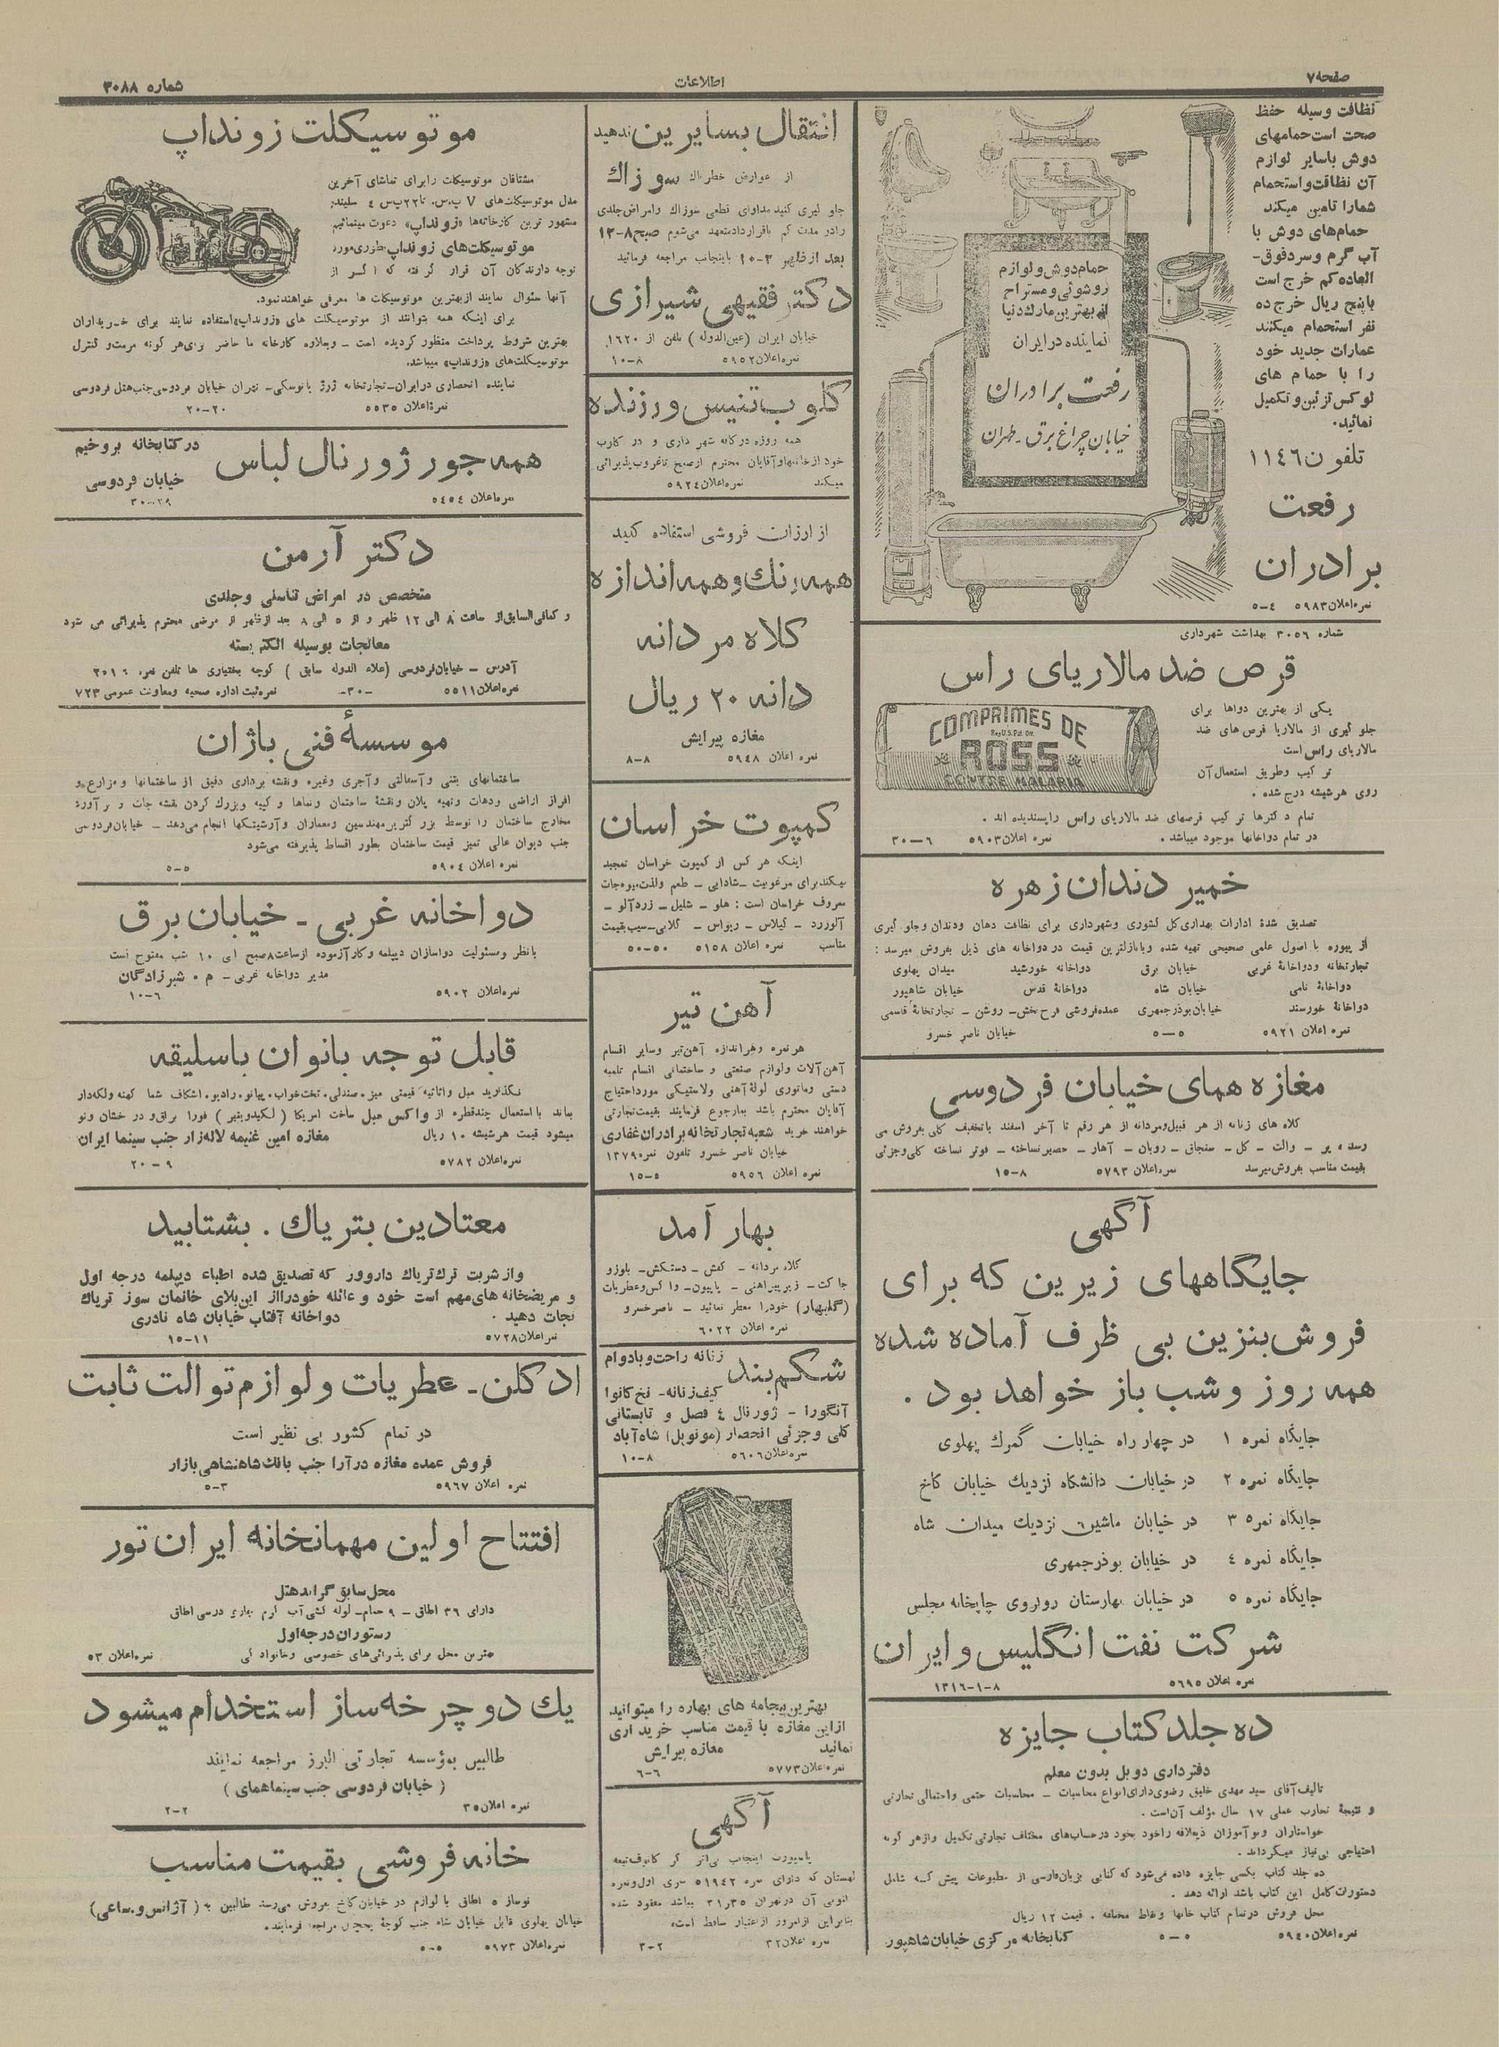 صفحه ۷
اطلاعات
شماره ۳۰۸۸
نظافت وسیله حفظ
صحت است حمامهای
دوش باسایر لوازم
آن نظافت و استحمام
شمارا تامین میکند
حمام‌های دوش با
آب گرم و سرد فوق-
العاده کم خرج است
با پنج ریال خرج ده
نفر استحمام میکنند
عمارات جدید خود
را با حمام های
لوکس تزئین و تکمیل
نمائید.
تلفون ۱۱٤٦
رفعت
برادران
نمره اعلان ۵۹۸۳ ٤-۵
حمام دوش و لوازم
روشوئی و مستراح
از بهترین مارک دنیا
نماینده در ایران
رفعت برادران
خیابان چراغ برق - طهران
شماره ۳۰۵٦ بهداشت شهرداری
قرص ضد مالاریای راس
یکی از بهترین دواها برای
جلو گیری از مالاریا قرص های ضد
مالاریای راس است
ترکیب وطریق استعمال آن
روی هر شیشه درج شده .
COMPRIMES DE
Reg U.S. Pat. Off.
ROSS
CONTRE MALARIA
تمام دکترها ترکیب قرصهای ضد مالاریای راس راپسندیده اند .
در تمام دواخانها موجود میباشد . نمره اعلان ۵۹۰۳ ٦-۳۰
خمیر دندان زهره
تصدیق شدهٔ ادارات بهداری کل کشوری وشهرداری برای نظافت دهان ودندان وجلو گیری
از پیوره با اصول علمی صحیحی تهیه شده وبانازلترین قیمت در دواخانه های ذیل بفروش میرسد :
تجارتخانه ودواخانهٔ غربی خیابان برق دواخانه خورشید میدان پهلوی
دواخانهٔ نامی خیابان شاه دواخانهٔ قدس خیابان شاهپور
دواخانهٔ خورسند خیابان بوذرجمهری عمده‌فروشی فرح بخش - روشن - تجارتخانهٔ قاسمی
نمره اعلان ۵۹۲۱ ۵-۵ خیابان ناصر خسرو
مغازه همای خیابان فردوسی
کلاه های زنانه از هر قبیل ومردانه از هر رقم تا آخر اسفند با تخفیف کلی بفروش می
رسد - پر - والت - گل - سنجاق - روبان - آهار - حصیر نساخته - فوتر نساخته کلی وجزئی
بقیمت مناسب بفروش میرسد نمره اعلان ۵۷۹۳ ۸-۱۵
آگهی
جایگاههای زیرین که برای
فروش بنزین بی ظرف آماده شده
همه روز و شب باز خواهد بود .
جایگاه نمره ۱ در چهار راه خیابان گمرك پهلوی
جایگاه نمره ۲ در خیابان دانشگاه نزدیك خیابان کاخ
جایگاه نمره ۳ در خیابان ماشین نزدیك میدان شاه
جایگاه نمره ٤ در خیابان بوذرجمهری
جایگاه نمره ۵ در خیابان بهارستان روبروی چاپخانه مجلس
شرکت نفت انگلیس و ایران
نمره اعلان ۵٦۹۵ ۸-۱-۱۳۱٦
ده جلد کتاب جایزه
دفترداری دوبل بدون معلم
تالیف آقای سید مهدی خلیق رضوی دارای انواع محاسبات - محاسبات حتمی واحتمالی تجارتی
و نتیجهٔ تجارب عملی ۱۷ سال مؤلف آن است .
خواستاران ونو آموزان ذیعلاقه را خود بخود در حساب‌های مختلف تجارتی تکمیل واز هر گونه
احتیاجی بی‌نیاز میگرداند .
ده جلد کتاب بکسی جایزه داده می‌شود که کتابی بزبان فارسی از مطبوعات پیش که شامل
دستورات کامل این کتاب باشد ارائه دهد .
محل فروش در تمام کتاب خانها ونقاط مختلفه . قیمت ۱۲ ریال
نمره اعلان ۵۹٤۰ ۵-۵ کتابخانه مرکزی خیابان شاهپور
انتقال بسایرین ندهید
از عوارض خطرناك سوزاك
جلو گیری کنید مداوای قطعی سوزاك وامراض جلدی
را در مدت کم با قرارداد متعهد می‌شوم صبح ۸-۱۲
بعد از ظهر ۳-۱۰ باینجانب مراجعه فرمائید
دکتر فقیهی شیرازی
خیابان ایران (عین الدوله) تلفن از ۱٦۲۰
نمره اعلان ۵۹۵۲ ۸-۱۰
کلوب تنیس ورزنده
همه روزه در کافه شهر داری و در کلوب
خود از خانمها و آقایان محترم از صبح تا غروب پذیرائی
میکند نمره اعلان ۵۹۲٤
از ارزان فروشی استفاده کنید
همه رنك و همه اندازه
کلاه مردانه
دانه ۲۰ ریال
مغازه پیرایش
نمره اعلان ۵۹٤۸ ۸-۸
کمپوت خراسان
اینکه هر کس از کمپوت خراسان تمجید
میکند برای مرغوبیت - شادابی - طعم ولذت میوه‌جات
معروف خراسان است : هلو - شلیل - زردآلو -
آلوزرد - گیلاس - ریواس - گلابی - سیب بقیمت
مناسب نمره اعلان ۵۱۵۸ ۵۰-۵۰
آهن تیر
هر نمره وهر اندازه آهن تیر وسایر اقسام
آهن آلات ولوازم صنعتی و ساختمانی اقسام تلمبه
دستی وماتوری لولهٔ آهنی ولاستیکی مورد احتیاج
آقایان محترم باشد بما رجوع فرمایند بقیمت تجارتی
خواهند خرید شعبه تجارتخانه برادران غفاری
خیابان ناصر خسرو تلفون نمره ۱۳۷۹
نمره اعلان ۵۹۵٦ ۵-۱۵
بهار آمد
کلاه مردانه - کفش - دستکش - بلوز و
جاکت - زیر پیراهنی - پاپیون - واکس وعطریات
(گلبهار) خود را معطر نمائید - ناصرخسرو
نمره اعلان ٦۰۲۲
شکم بند زنانه راحت و بادوام
کیف زنانه - نخ کانوا
آنگورا - ژورنال ٤ فصل و تابستانی
کلی و جزئی انحصار (مونوپل) شاه‌آباد
نمره اعلان ۵٦۰٦ ۸-۱۰
بهترین پیجامه های بهاره را میتوانید
از این مغازه با قیمت مناسب خریداری
نمائید مغازه پیرایش
نمره اعلان ۵۷۷۳ ٦-٦
آگهی
پاسپورت اینجانب
لهستان که دارای نمره ۵۱۹٤۲ سری اول ونمره
آن در تهران میباشد مفقود شده
بنابراین از امروز از اعتبار ساقط است
نمره اعلان ۳۲ ۲-۳
موتوسیکلت زونداپ
مشتاقان موتوسیکلت را برای تماشای آخرین
مدل موتوسیکلت‌های ۷ پ.س. تا ۲۲ پ.س ٤ سلیندر
مشهور ترین کارخانه‌ها «زونداپ» دعوت مینمائیم
موتوسیکلت‌های زونداپ بطوری مورد
توجه دارندگان آن قرار گرفته که اگر از
آنها سئوال نمایند از بهترین موتوسیکلت ها معرفی خواهند نمود.
برای اینکه همه بتوانند از موتوسیکلت های «زونداپ» استفاده نمایند برای خریداران
بهترین شروط پرداخت منظور گردیده است - وبعلاوه کارخانه ما حاضر برای هر گونه مرمت و کنترل
موتوسیکلت‌های «زونداپ» میباشد.
نماینده انحصاری در ایران - تجارتخانه ژرژ یانوسکی - تهران خیابان فردوسی جنب هتل فردوسی
نمره اعلان ۵۵۳۵ ۲۰-۲۰
همه جور ژورنال لباس
در کتابخانه بروخیم
خیابان فردوسی
نمره اعلان ۵٤۵٤ ۲۹-۳۰
دکتر آرمن
متخصص در امراض تناسلی وجلدی
و کمافی السابق از ساعت ۸ الی ۱۲ ظهر و از ۵ الی ۸ بعد از ظهر از مرضی محترم پذیرائی می شود
معالجات بوسیله الکتریسته
آدرس - خیابان فردوسی (علاء الدوله سابق) کوچه بختیاری ها تلفن نمره ۳۰۱٦
نمره اعلان ۵۵۱۱ -۳۰- نمره ثبت اداره صحیه ومعاونت عمومی ۷۲۳
موسسهٔ فنی باژان
ساختمانهای بتنی وآسفالتی وآجری وغیره ونقشه برداری دقیق از ساختمانها ومزارع و
افراز اراضی ودهات وتهیه پلان ونقشهٔ ساختمان ونماها و کپیه وبزرك کردن نقشه جات و برآورد
مخارج ساختمان را توسط بزرگترین مهندسین ومعماران وآرشیتکها انجام می‌دهد - خیابان فردوسی
جنب دیوان عالی تمیز قیمت ساختمان بطور اقساط پذیرفته می‌شود
نمره اعلان ۵۹۰٤ ۵-۵
دواخانه غربی - خیابان برق
با نظر ومسئولیت دواسازان دیپلمه وکارآزموده از ساعت ۸ صبح الی ۱۰ شب مفتوح است
مدیر دواخانه غربی - م . شیرزادگان
نمره اعلان ۵۹۰۲ ٦-۱۰
قابل توجه بانوان باسلیقه
نگذارید مبل واثاثیه قیمتی میز. صندلی. تخت‌خواب. پیانو. رادیو. اشکاف شما کهنه ولکه‌دار
بماند با استعمال چند قطره از واکس مبل ساخت امریکا (لیکید ونیر) فورا براق و درخشان ونو
میشود قیمت هر شیشه ۱۰ ریال مغازه امین غنیمه لاله‌زار جنب سینما ایران
نمره اعلان ۵۷۸۲ ۹-۲۰
معتادین بتریاك . بشتابید
و از شربت ترك تریاك داروور که تصدیق شده اطباء دیپلمه درجه اول
و مریضخانه های مهم است خود و عائله خود را از این بلای خانمان سوز تریاك
نجات دهید . دواخانه آفتاب خیابان شاه نادری
نمره اعلان ۵۷۲۸ ۱۱-۱۵
ادکلن - عطریات و لوازم توالت ثابت
در تمام کشور بی نظیر است
فروش عمده مغازه درآرا جنب بانك شاهنشاهی بازار
نمره اعلان ۵۹٦۷ ۳-۵
افتتاح اولین مهمانخانه ایران تور
محل سابق گراند هتل
دارای ۳٦ اطاق - ۹ حمام - لوله کشی آب گرم بخاری درسی اطاق
رستوران درجه اول
بهترین محل برای پذیرائی‌های خصوصی وخانوادگی نمره اعلان ۵۳
یك دوچرخه‌ساز استخدام میشود
طالبین بمؤسسه تجارتی البرز مراجعه نمایند
(خیابان فردوسی جنب سینما همای)
نمره اعلان ۳۵ ۲-۲
خانه فروشی بقیمت مناسب
نوساز ۵ اطاق با لوازم در خیابان کاخ بفروش می‌رسد طالبین به (آژانس و. ساعی)
خیابان پهلوی مقابل خیابان شاه جنب کوچهٔ یخچال مراجعه فرمایند.
نمره اعلان ۵۹۷۳ ۵-۵